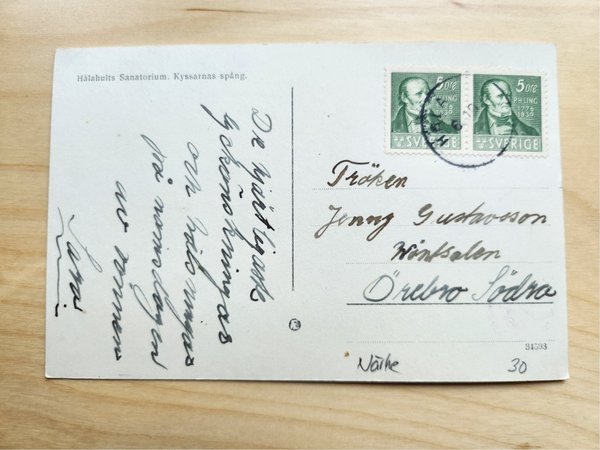 Hålahults Sanatorium. Kyssarnas spång.
De hjärtligaste
lyckönskningar
och hälsningar
på namnsdagen
av
5 ÖRE
PH LING
1776
1839
SVERIGE
5 ÖRE
PH LING
1776
1839
SVERIGE
Fröken
Jenny Gustavsson
Örebro Södra
Närke
30